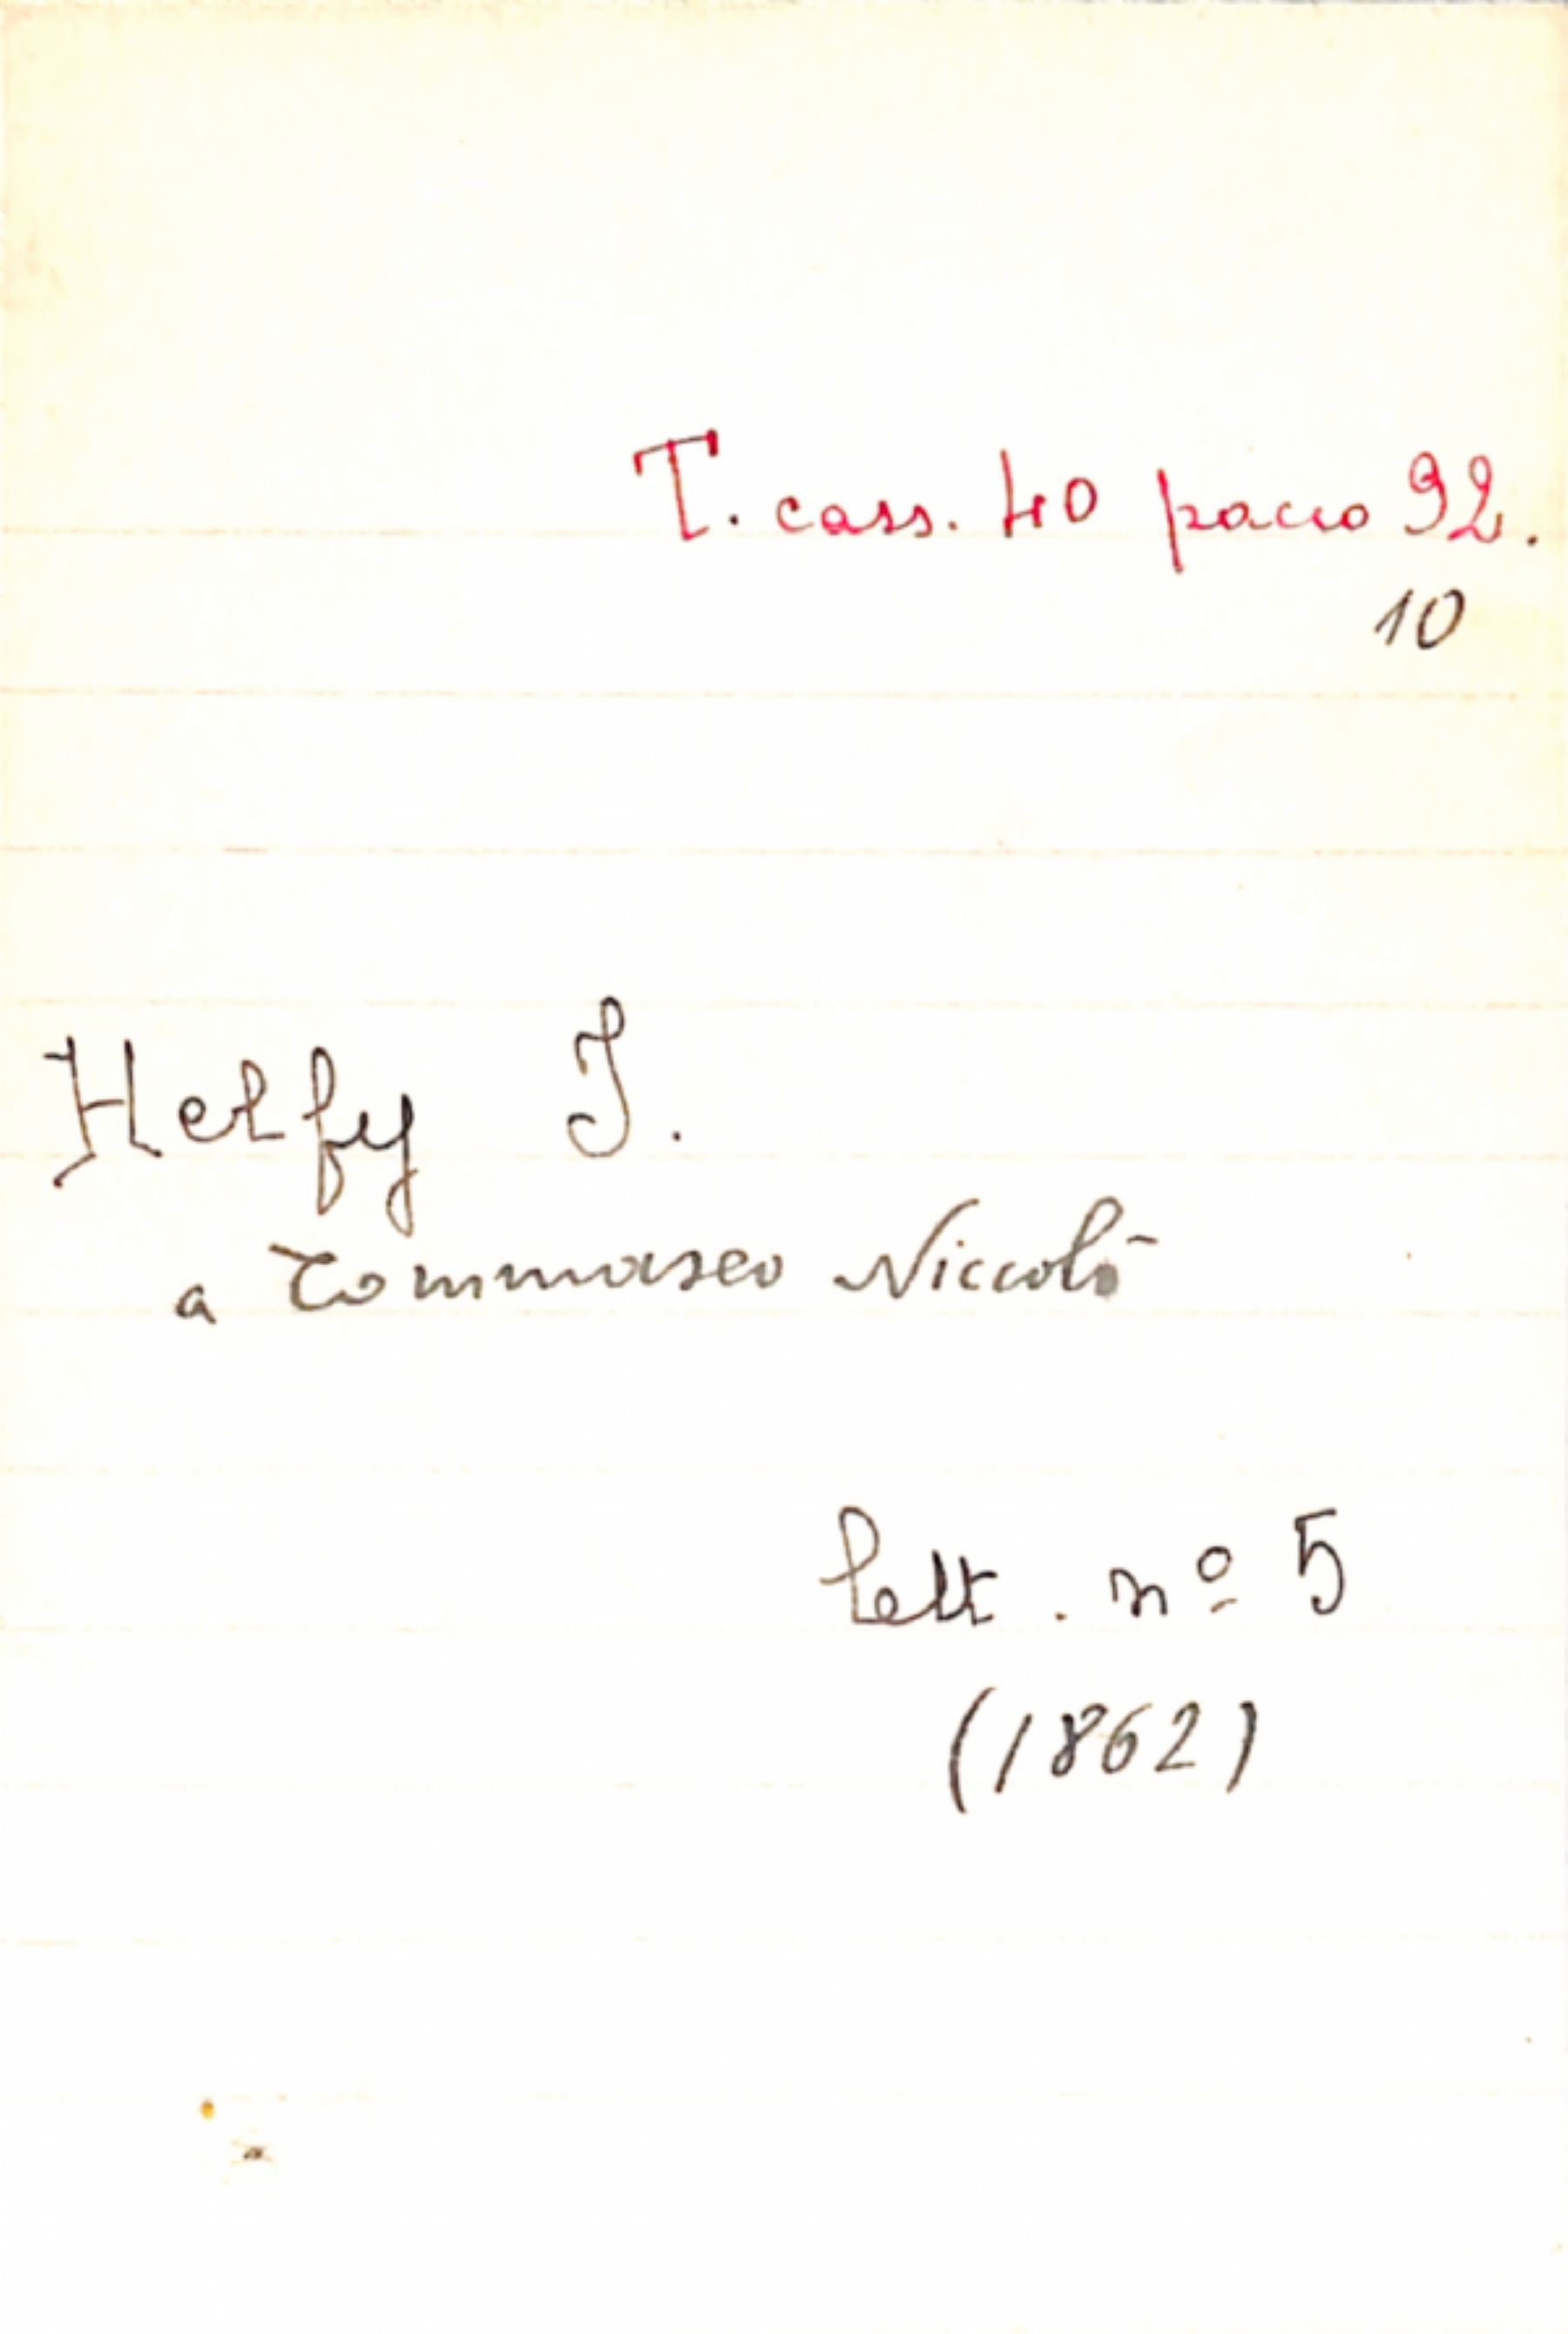 T. cass. 40 pacco 92.
10
Helfy I.
a Tommaseo Niccolò
lett. nº 5
(1862)